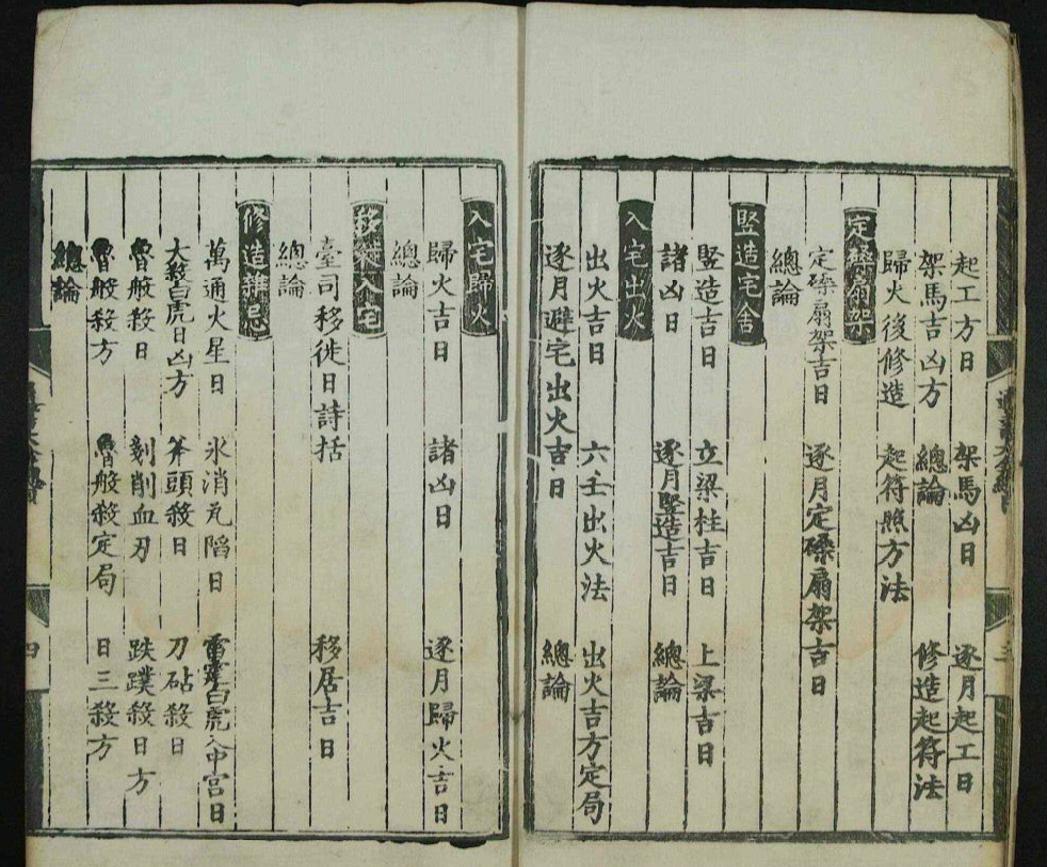 起工方日　架馬凶日　逐月起工日
架馬吉凶方　總論　修造起符法
歸火後修造　起符照方法
定磉扇架
定磉扇架吉日　逐月定磉扇架吉日
總論
竪造宅舍
竪造吉日　立梁柱吉日　上梁吉日
諸凶日　逐月竪造吉日　總論
入宅出火
出火吉日　六壬出火法　出火吉方定局
逐月避宅出火吉日　總論
入宅歸火
歸火吉日　諸凶日　逐月歸火吉日
總論
移徙入宅
臺司移徙日詩括　移居吉日
總論
修造雜忌
萬通火星日　氷消瓦陷日　雷霆白虎入中宮日
大殺白虎日凶方　斧頭殺日　刀砧殺日
魯般殺日　剗削血刃　跌蹼殺日方
魯般殺方　魯般殺定局　日三殺方
總論
三
四